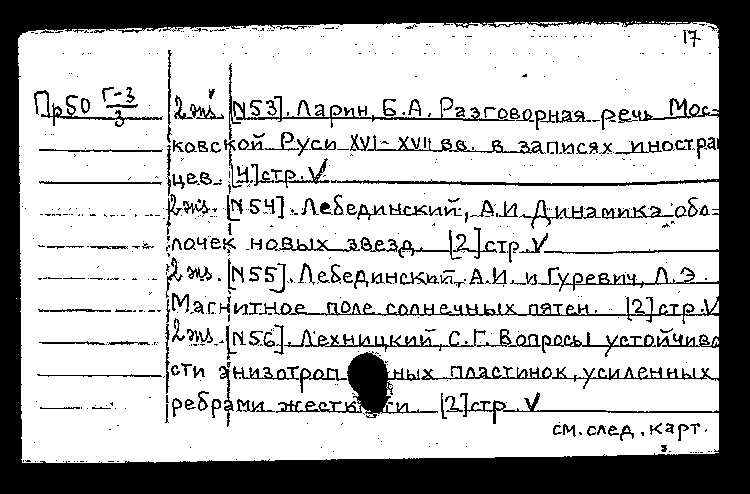 17
Пр50 Г-3/3 2 экз. [N53]. Ларин, Б.А. Разговорная речь Мос-
ковской Руси XVI-XVII вв. в записях иностран
цев. [4]стр. V
2 экз. [N54]. Лебединский, А.И. Динамика обо-
лочек новых звезд. [2]стр. V
2 экз. [N55]. Лебединский, А.И. и Гуревич, Л.Э.
Магнитное поле солнечных пятен. [2]стр. V
2 экз. [N56]. Лехницкий, С.Г. Вопросы устойчиво
сти анизотроп ных пластинок, усиленных
ребрами жестк сти. [2]стр. V
см. след. карт.